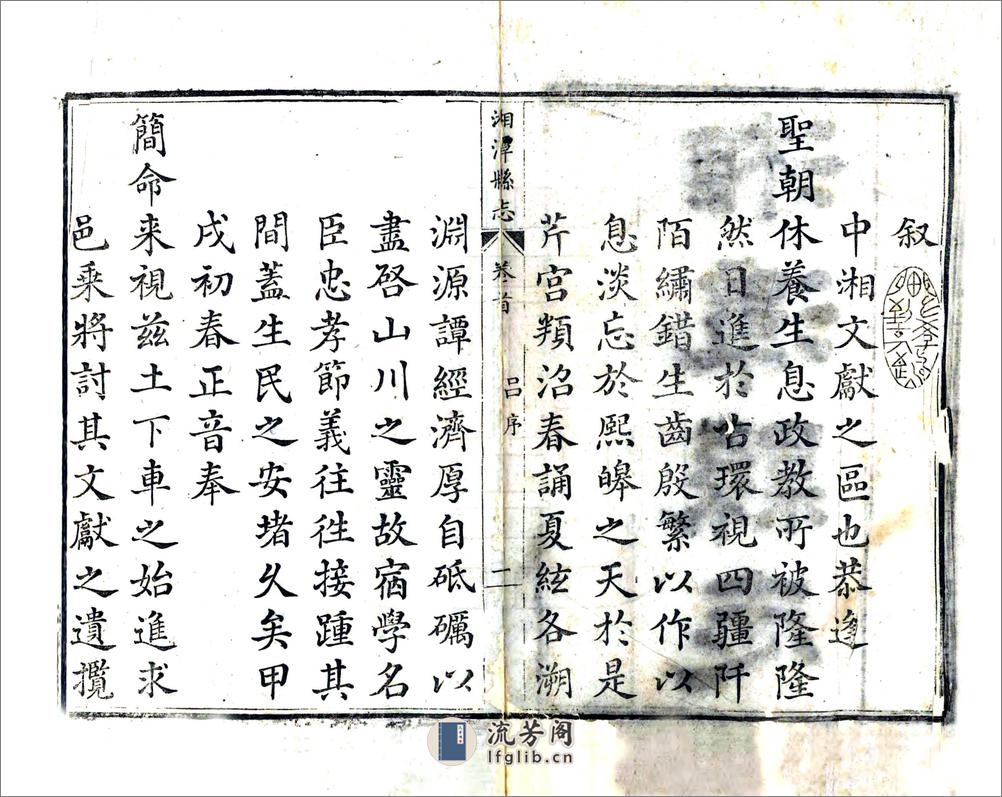 叙
中湘文獻之區也恭逢
聖朝休養生息政教所被隆隆
然日進於古環視四疆阡
陌繡錯生齒殷繁以作以
息淡忘於熙皞之天於是
芹宮類沼春誦夏絃各溯
湘潭縣志
卷首
呂序
一
淵源譚經濟厚自砥礪以
盡啓山川之靈故宿學名
臣忠孝節義往徃接踵其
間蓋生民之安堵久矣甲
戌初春正音奉
簡命来視兹土下車之始進求
邑乘將討其文獻之遺攬
流芳阁
lfglib.cn